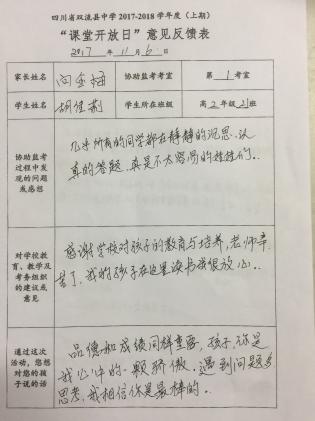 四川省双流县中学2017-2018学年度（上期）
“课堂开放日”意见反馈表
2017年11月6日
家长姓名 协助监考考室 第1考室
学生姓名 胡佳莉 学生所在班级 高2年级21班
协助监考
过程中发
现的问题
或感想
几乎所有的同学都在静静的沉思.认
真的答题.真是不太容易的娃娃们..
对学校教
育、教学及
考务组织
的建议或
意见
感谢学校对孩子的教育与培养,老师辛
苦了.我的孩子在这里读书我很放心..
通过这次
活动，您想
对您的孩
子说的话
品德和成绩同样重要,孩子,你是
我心中的一颗骄傲.遇到问题多
思考,我相信你是最棒的.